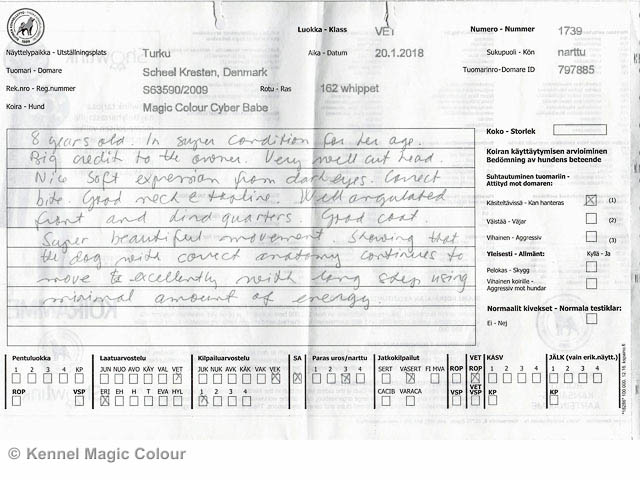 Luokka - Klass VET Numero - Nummer 1739
Näyttelypaikka - Utställningsplats Turku Aika - Datum 20.1.2018 Sukupuoli - Kön narttu
Tuomari - Domare Scheel Kresten, Denmark Tuomarinro-Domare ID 797885
Rek.nro - Reg.nummer S63590/2009 Rotu - Ras 162 whippet
Koira - Hund Magic Colour Cyber Babe
Koko - Storlek
8 years old. In super condition for her age.
Big credit to the owner. Very well cut head.
Nice soft expression from dark eyes. Correct
bite. Good neck & topline. Well angulated
front and hind quarters. Good coat.
Super beautiful movement. Showing that
the dog with correct anatomy continues to
move excellently with long step using
minimal amount of energy
Koiran käyttäytymisen arvioiminen
Bedömning av hundens beteende
Suhtautuminen tuomariin -
Attityd mot domaren:
Käsiteltävissä - Kan hanteras (1)
Väistää - Väjar (2)
Vihainen - Aggressiv (3)
Yleisesti - Allmänt: Kyllä - Ja
Pelokas - Skygg
Vihainen koirille -
Aggressiv mot hundar
Normaalit kivekset - Normala testiklar:
Ei - Nej
Pentuluokka Laatuarvostelu Kilpailuarvostelu SA Paras uros/narttu Jatkokilpailut VET KASV JÄLK (vain erik.näytt.)
1 2 3 4 KP JUN NUO AVO KÄY VAL VET JUK NUK AVK KÄK VAK VEK 1 2 3 4 SERT VASERT FI MVA ROP ROP 1 2 3 4 1 2 3 4
ROP VSP ERI EH H T EVA HYL 1 2 3 4 CACIB VARACA VSP VET VSP KP KP
© Kennel Magic Colour